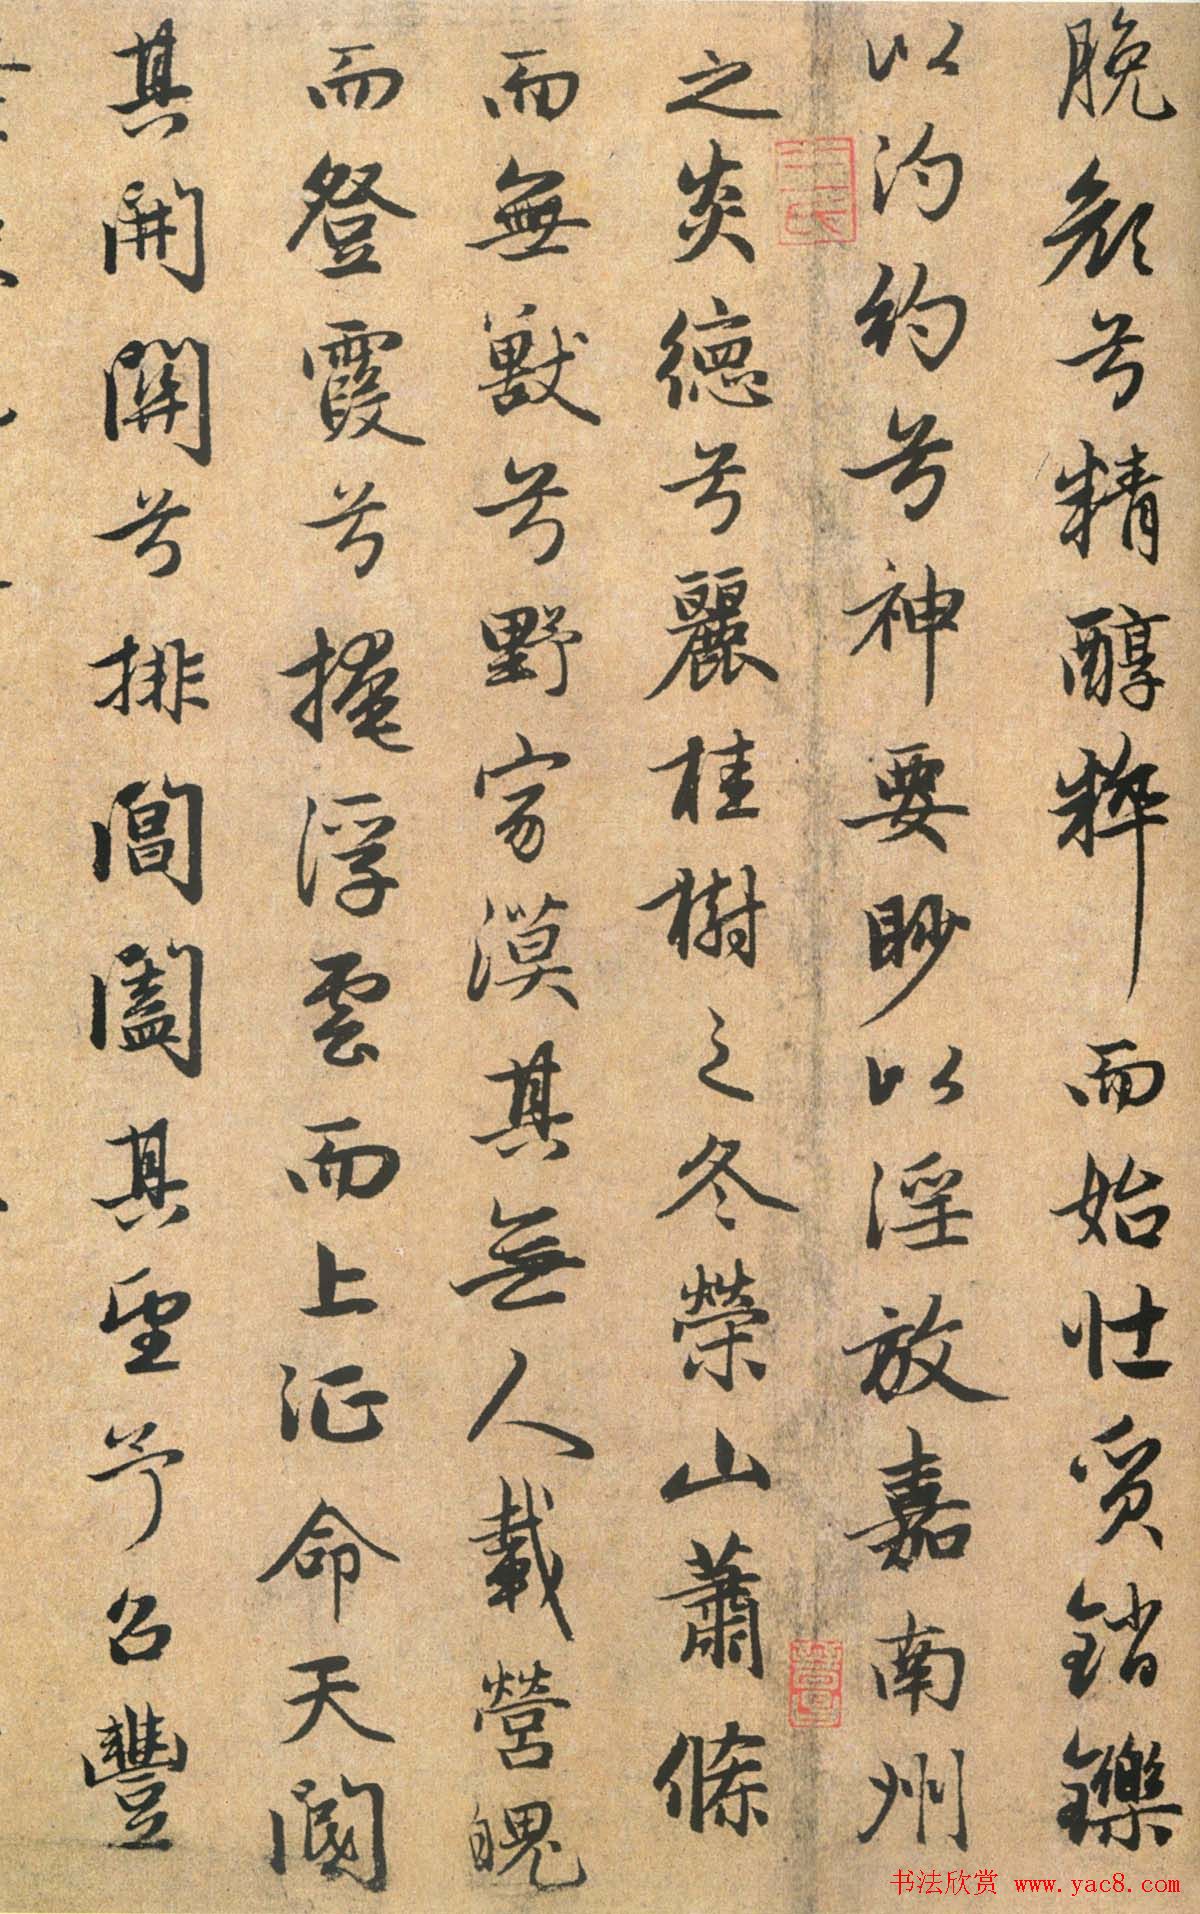 脕顏兮精醇粹而始壯質銷鑠
以汋約兮神要眇以淫放嘉南州
之炎德兮麗桂樹之冬榮山蕭條
而無獸兮野寂漠其無人載營魄
而登霞兮掩浮雲而上征命天閽
其開關兮排閶闔其望予召豐
书法欣赏 www.yac8.com